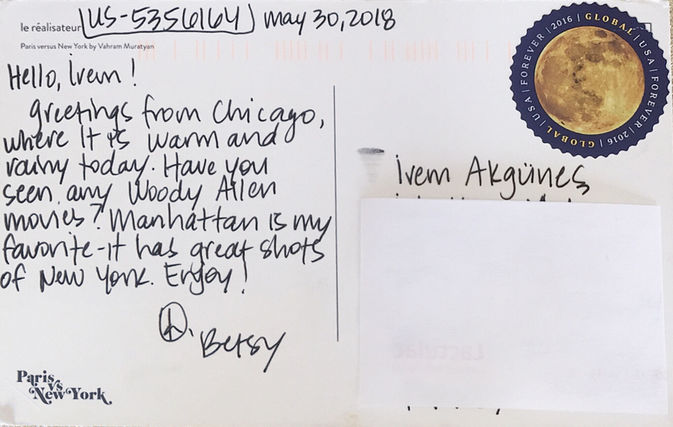 le réalisateur US-5356164 May 30, 2018
Paris versus New York by Vahram Muratyan
Hello, İrem!
Greetings from Chicago,
where it is warm and
rainy today. Have you
seen any Woody Allen
movies? Manhattan is my
favorite-it has great shots
of New York. Enjoy!
Betsy
Paris
vs
New York
FOREVER | 2016 | GLOBAL | USA | FOREVER | 2016 | GLOBAL | USA
İrem Akgüneş